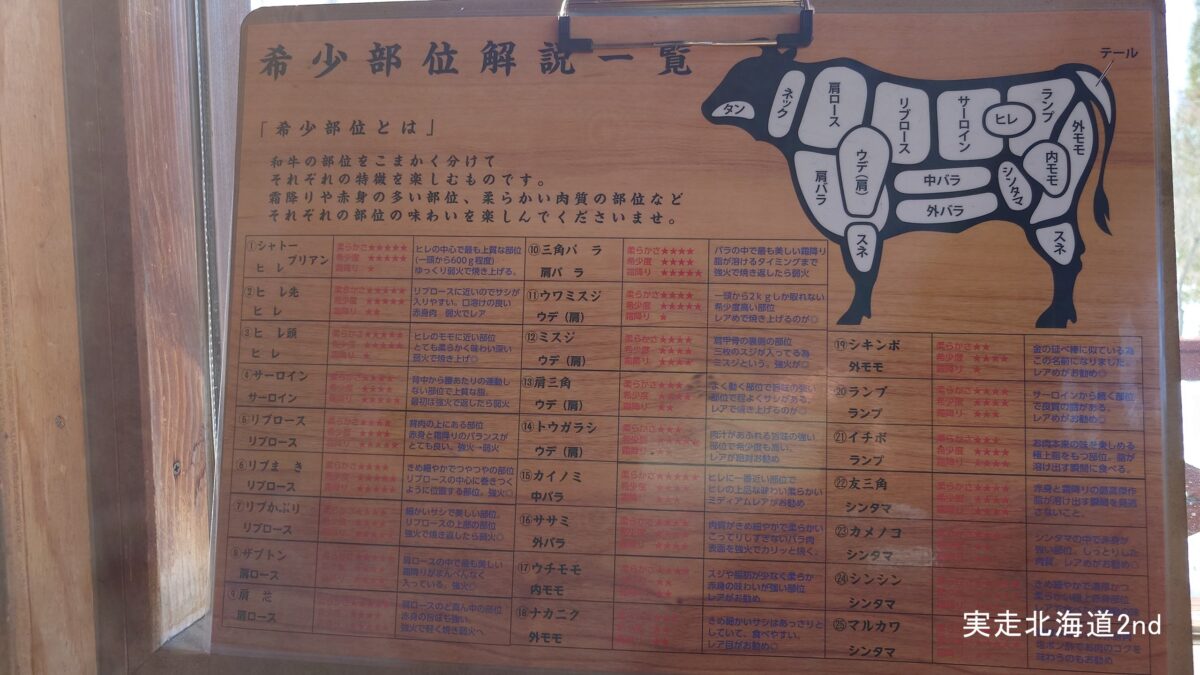 希少部位解説一覧
「希少部位とは」
和牛の部位をこまかく分けて
それぞれの特徴を楽しむものです。
霜降りや赤身の多い部位、柔らかい肉質の部位など
それぞれの部位の味わいを楽しんでくださいませ。
テール
タン
ネック
肩ロース
リブロース
サーロイン
ヒレ
ランプ
外モモ
内モモ
シンタマ
ウデ(肩)
肩バラ
中バラ
外バラ
スネ
スネ
①シャトーブリアン
ヒレ
柔らかさ★★★★★
希少度 ★★★★★
霜降り ★
ヒレの中心で最も上質な部位
(一頭から600g程度)
ゆっくり弱火で焼き上げる。
②ヒレ先
ヒレ
リブロースに近いのでサシが
入りやすい。口溶けの良い
赤身肉 弱火でレア
③ヒレ頭
ヒレ
ヒレのモモに近い部位
とても柔らかく味わい深い
弱火で焼き上げ◎
④サーロイン
サーロイン
背中から腰あたりの運動し
ない部位で上質な脂。
最初は強火で返したら弱火
⑤リブロース
リブロース
背肉の上にある部位
赤身と霜降りのバランスが
とても良い。強火→弱火
⑥リブまき
リブロース
きめ細やかでつやつやの部位
リブロースの中心に巻きつく
ように位置する部位。強火◎
⑦リブかぶり
リブロース
細かいサシで美しい部位。
リブロースの上部の部位
強火で焼き返したら弱火◎
⑧ザブトン
肩ロース
肩ロースの中で最も美しい
霜降りがまんべんなく
入っている。強火◎
⑨肩芯
肩ロース
肩ロースのど真ん中の部位
赤身の旨味も強い。
強火で軽く焼き弱火へ
⑩三角バラ
肩バラ
柔らかさ★★★★
希少度 ★★★★
霜降り ★★★★★
バラの中で最も美しい霜降り
脂が溶けるタイミングまで
強火で焼き返したら弱火
⑪ウワミスジ
ウデ(肩)
柔らかさ★★★★
希少度 ★★★★★
霜降り ★
一頭から2kgしか取れない
希少度高い部位
レアめで焼き上げるのが◎
⑫ミスジ
ウデ(肩)
肩甲骨の裏側の部位
三枚のスジが入ってる為
ミスジという。強火が◎
⑬肩三角
ウデ(肩)
よく動く部位で旨味の強い
部位で程よくサシがある。
レアで焼き上げるのが◎
⑭トウガラシ
ウデ(肩)
肉汁があふれる旨味の強い
部位で希少度も高い。
レアが絶対お勧め
⑮カイノミ
中バラ
ヒレに一番近い部位で
ヒレの上品な味わい柔らかい
ミディアムレアがお勧め
⑯ササミ
外バラ
肉質がきめ細やかで柔らかい
こってりしすぎないバラ肉
表面を強火でカリッと焼く。
⑰ウチモモ
内モモ
スジや脂肪が少なく柔らか
赤身の味わいが強い部位
レアがお勧め
⑱ナカニク
外モモ
きめ細かいサシはあっさりと
していて、食べやすい。
レア目がお勧め◎
⑲シキンボ
外モモ
柔らかさ★★
希少度 ★★★★
霜降り ★
金の延べ棒に似ている為
この名前になりました。
レアめがお勧め◎
⑳ランプ
ランプ
サーロインから続く部位
で良質の脂がある。
レアめがお勧め◎
㉑イチボ
ランプ
お肉本来の味を楽しめる
極上脂をもつ部位。脂が
溶け出す瞬間に食べる。
㉒友三角
シンタマ
赤身と霜降りの最高傑作
脂が溶け出す瞬間を見逃
さないこと。
㉓カメノコ
シンタマ
シンタマの中で赤身が
強い部位。しっとりした
肉質。レアめがお勧め◎
㉔シンシン
シンタマ
きめ細やかで適度かつ
㉕マルカワ
シンタマ
塩ポン酢でお肉のコクを
味わうのもお勧め
実走北海道2nd